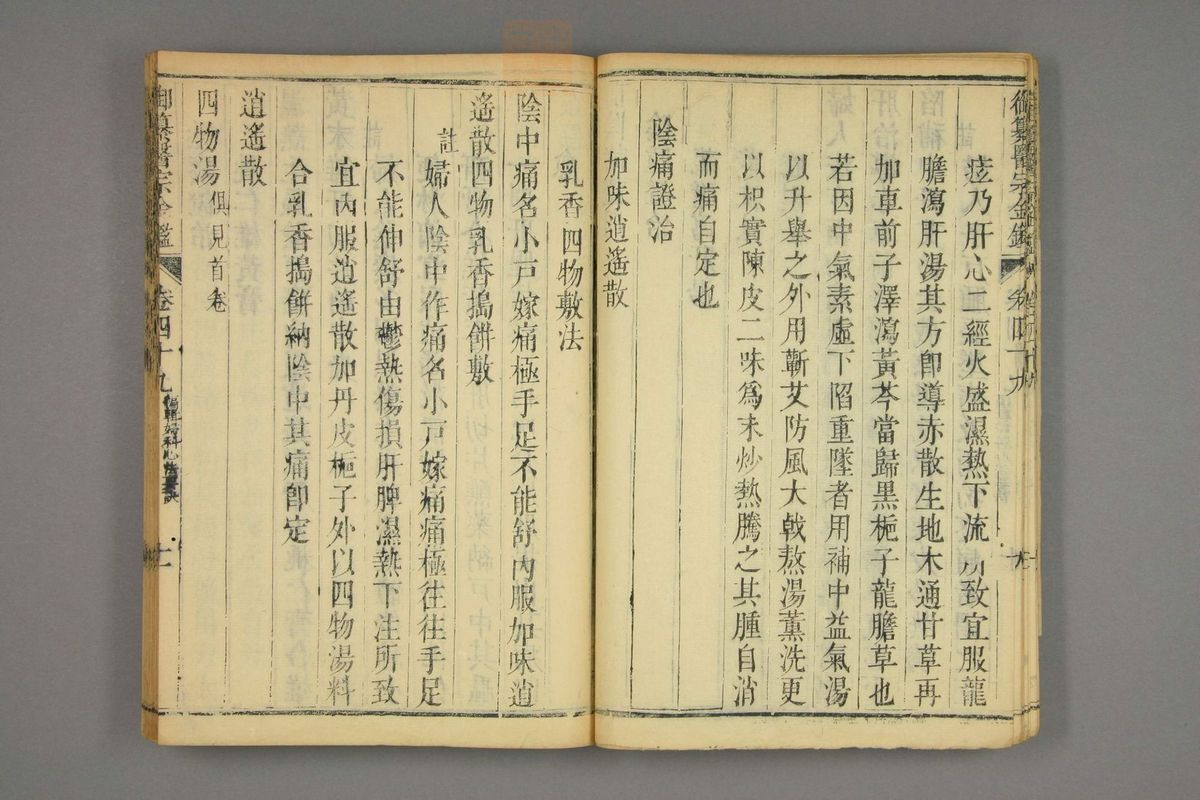 御纂醫宗金鑑 卷四十九
痃乃肝心二經火盛濕熱下流所致宜服龍
膽瀉肝湯其方卽導赤散生地木通甘草再
加車前子澤瀉黃芩當歸黑梔子龍膽草也
若因中氣素虛下陷重墜者用補中益氣湯
以升舉之外用蘄艾防風大戟熬湯薰洗更
以枳實陳皮二味爲末炒熱騰之其腫自消
而痛自定也
陰痛證治
加味逍遙散
乳香四物敷法
陰中痛名小戶嫁痛極手足不能舒內服加味逍
遙散四物乳香搗餅敷
註
婦人陰中作痛名小戶嫁痛痛極往往手足
不能伸舒由鬱熱傷損肝脾濕熱下注所致
宜內服逍遙散加丹皮梔子外以四物湯料
合乳香搗餅納陰中其痛卽定
逍遙散
四物湯 俱見首卷
御纂醫宗金鑑 卷四十九 編輯婦科心法要訣